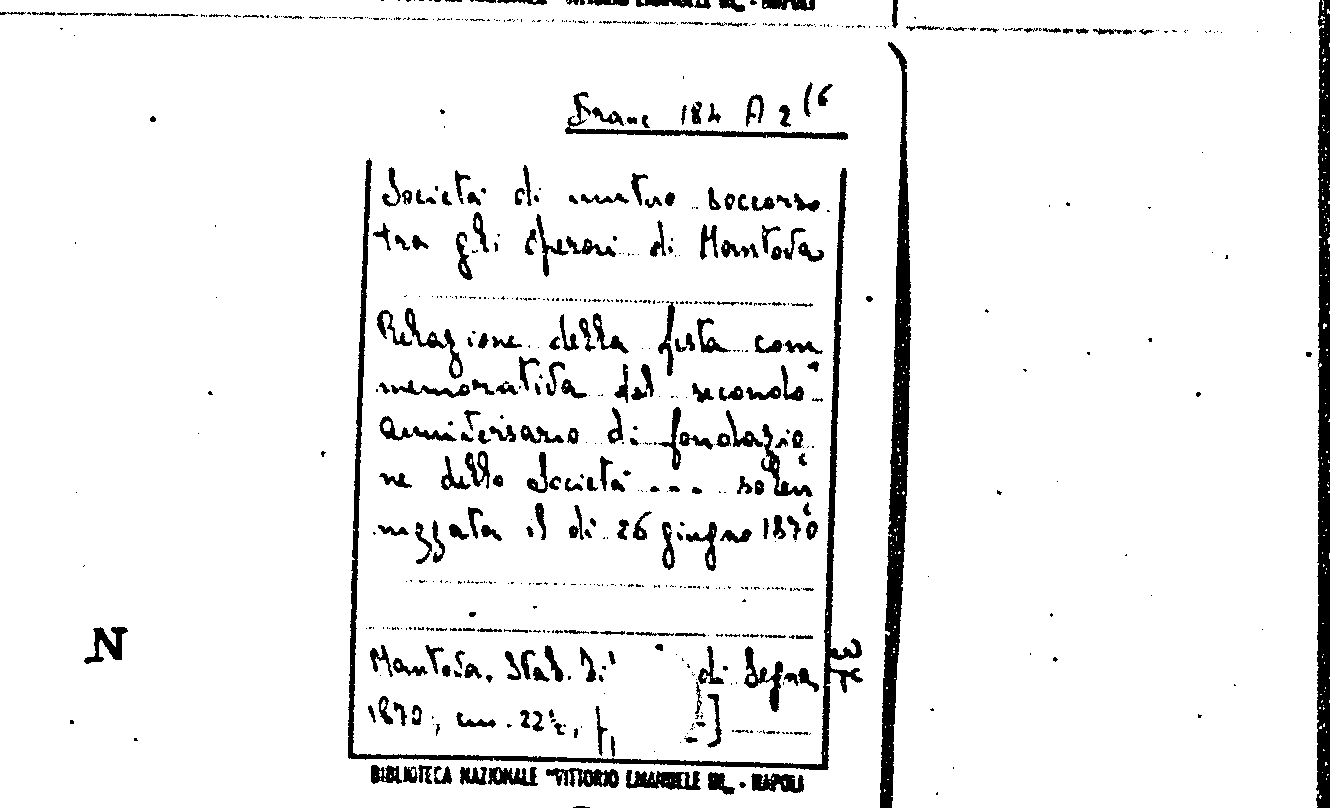 BIBLIOTECA NAZIONALE "VITTORIO EMANUELE III" - NAPOLI
Branc 184 A 2 (6
Società di mutuo soccorso
tra gli operai di Mantova
Relazione della festa com
memorativa del secondo
anniversario di fondazio
ne della Società ... solen
nizzata il dì 26 giugno 1870
N
Mantova, Stab. di Segna
1870, cm. 22½,
BIBLIOTECA NAZIONALE "VITTORIO EMANUELE III" - NAPOLI